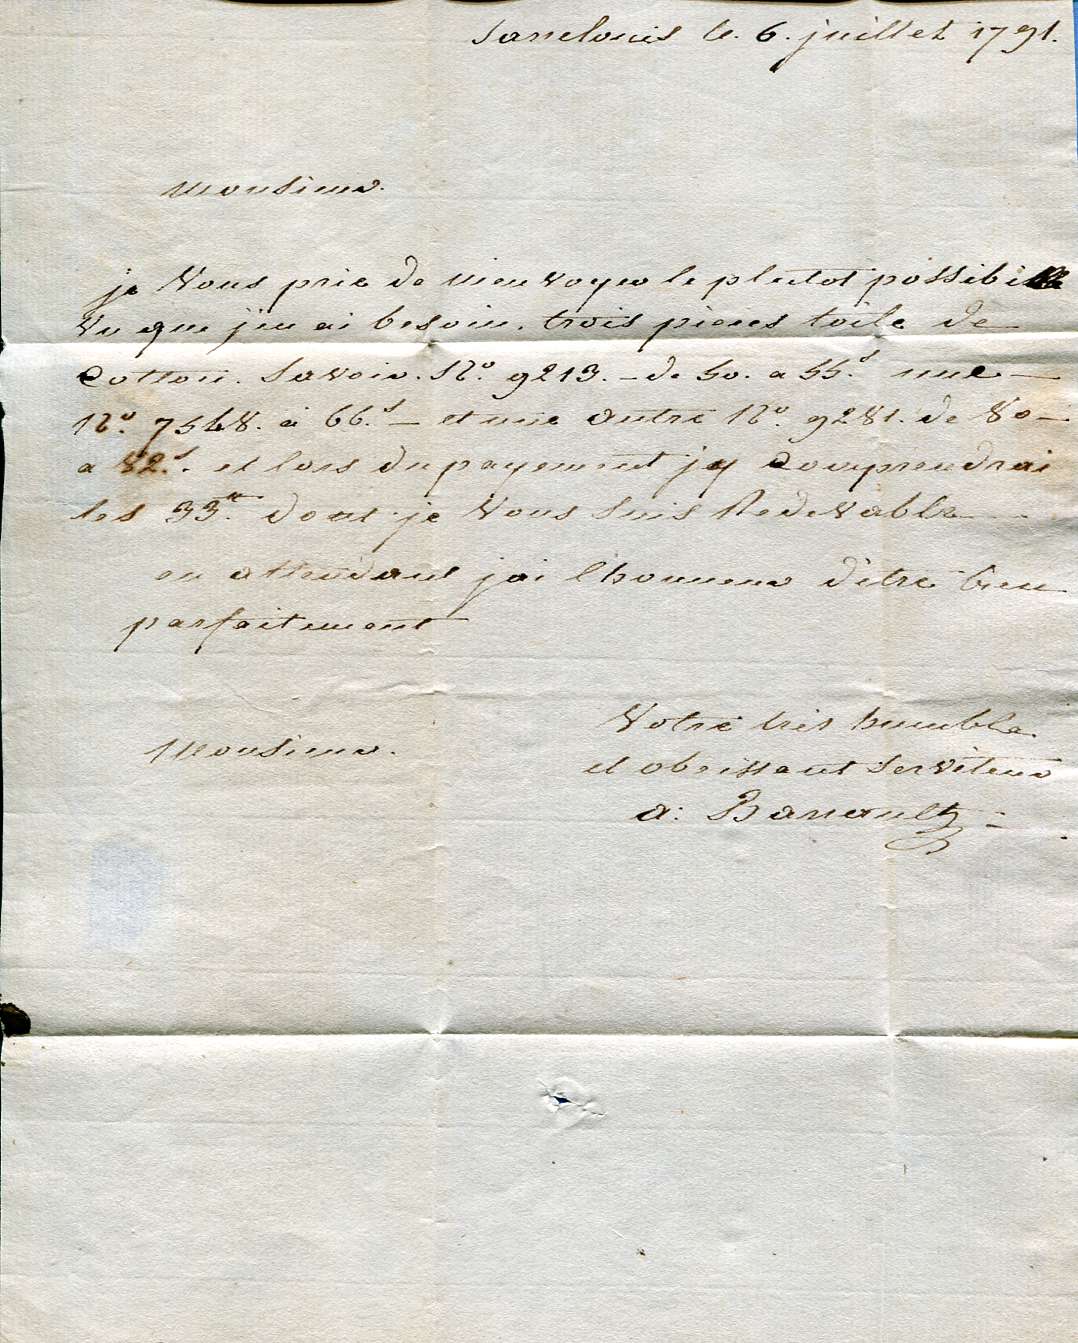 Sarrelouis le. 6. juillet 1791.
Monsieur.
je vous prie de m'envoyer le plutot possible
vu que j'en ai besoin. trois pieces toile de
Cotton. Savoir. N.o 9213. - de 50. a 55.s une
N.o 7548. a 66.s - et une autre N.o 9281. de 80
a 82.s. et lors du payement jy Comprendrai
les 33.tt dont je vous suis Redevable
en attendant jai lhonneur d'etre bien
parfaitement
Monsieur.
Votre tres humble
et obeissant serviteur
a: Barrault